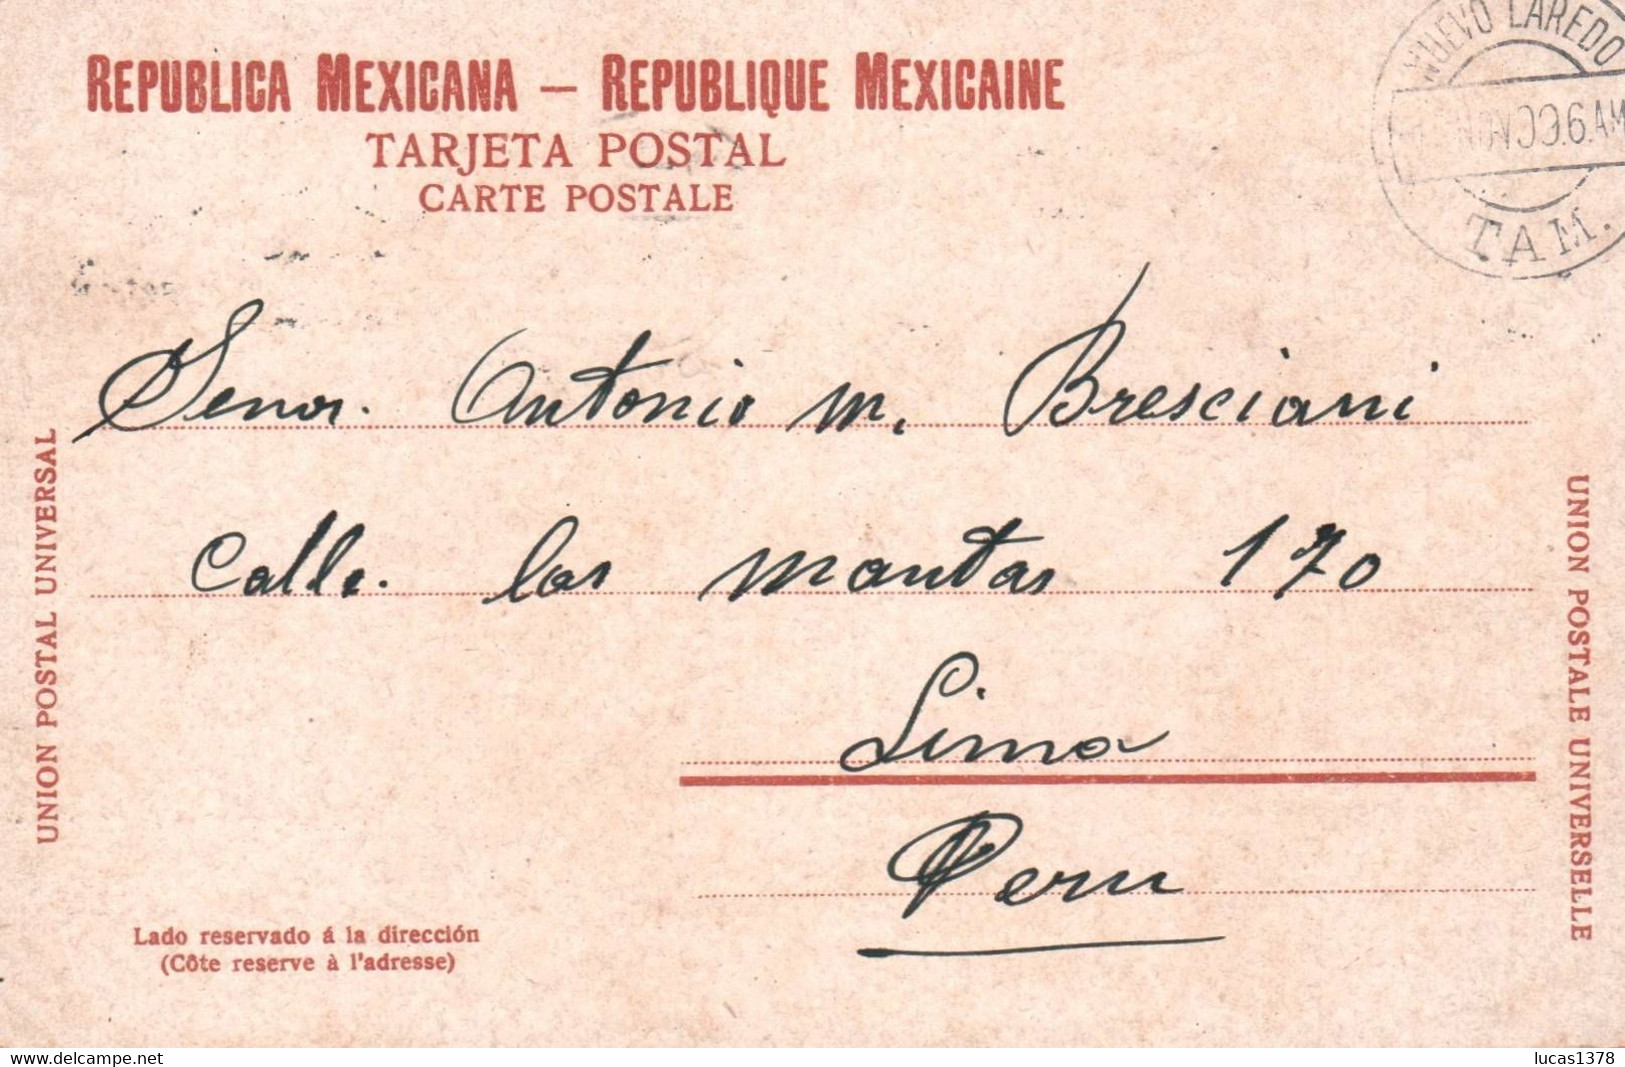 REPUBLICA MEXICANA — REPUBLIQUE MEXICAINE
TARJETA POSTAL
CARTE POSTALE
NUEVO LAREDO
NOV 09.6 AM
TAM.
Senor. Antonio M. Bresciani
Calle. las mantas 170
Lima
Peru
UNION POSTAL UNIVERSAL
UNION POSTALE UNIVERSELLE
Lado reservado á la dirección
(Côte reserve à l'adresse)
delcampe.net
lucas1378